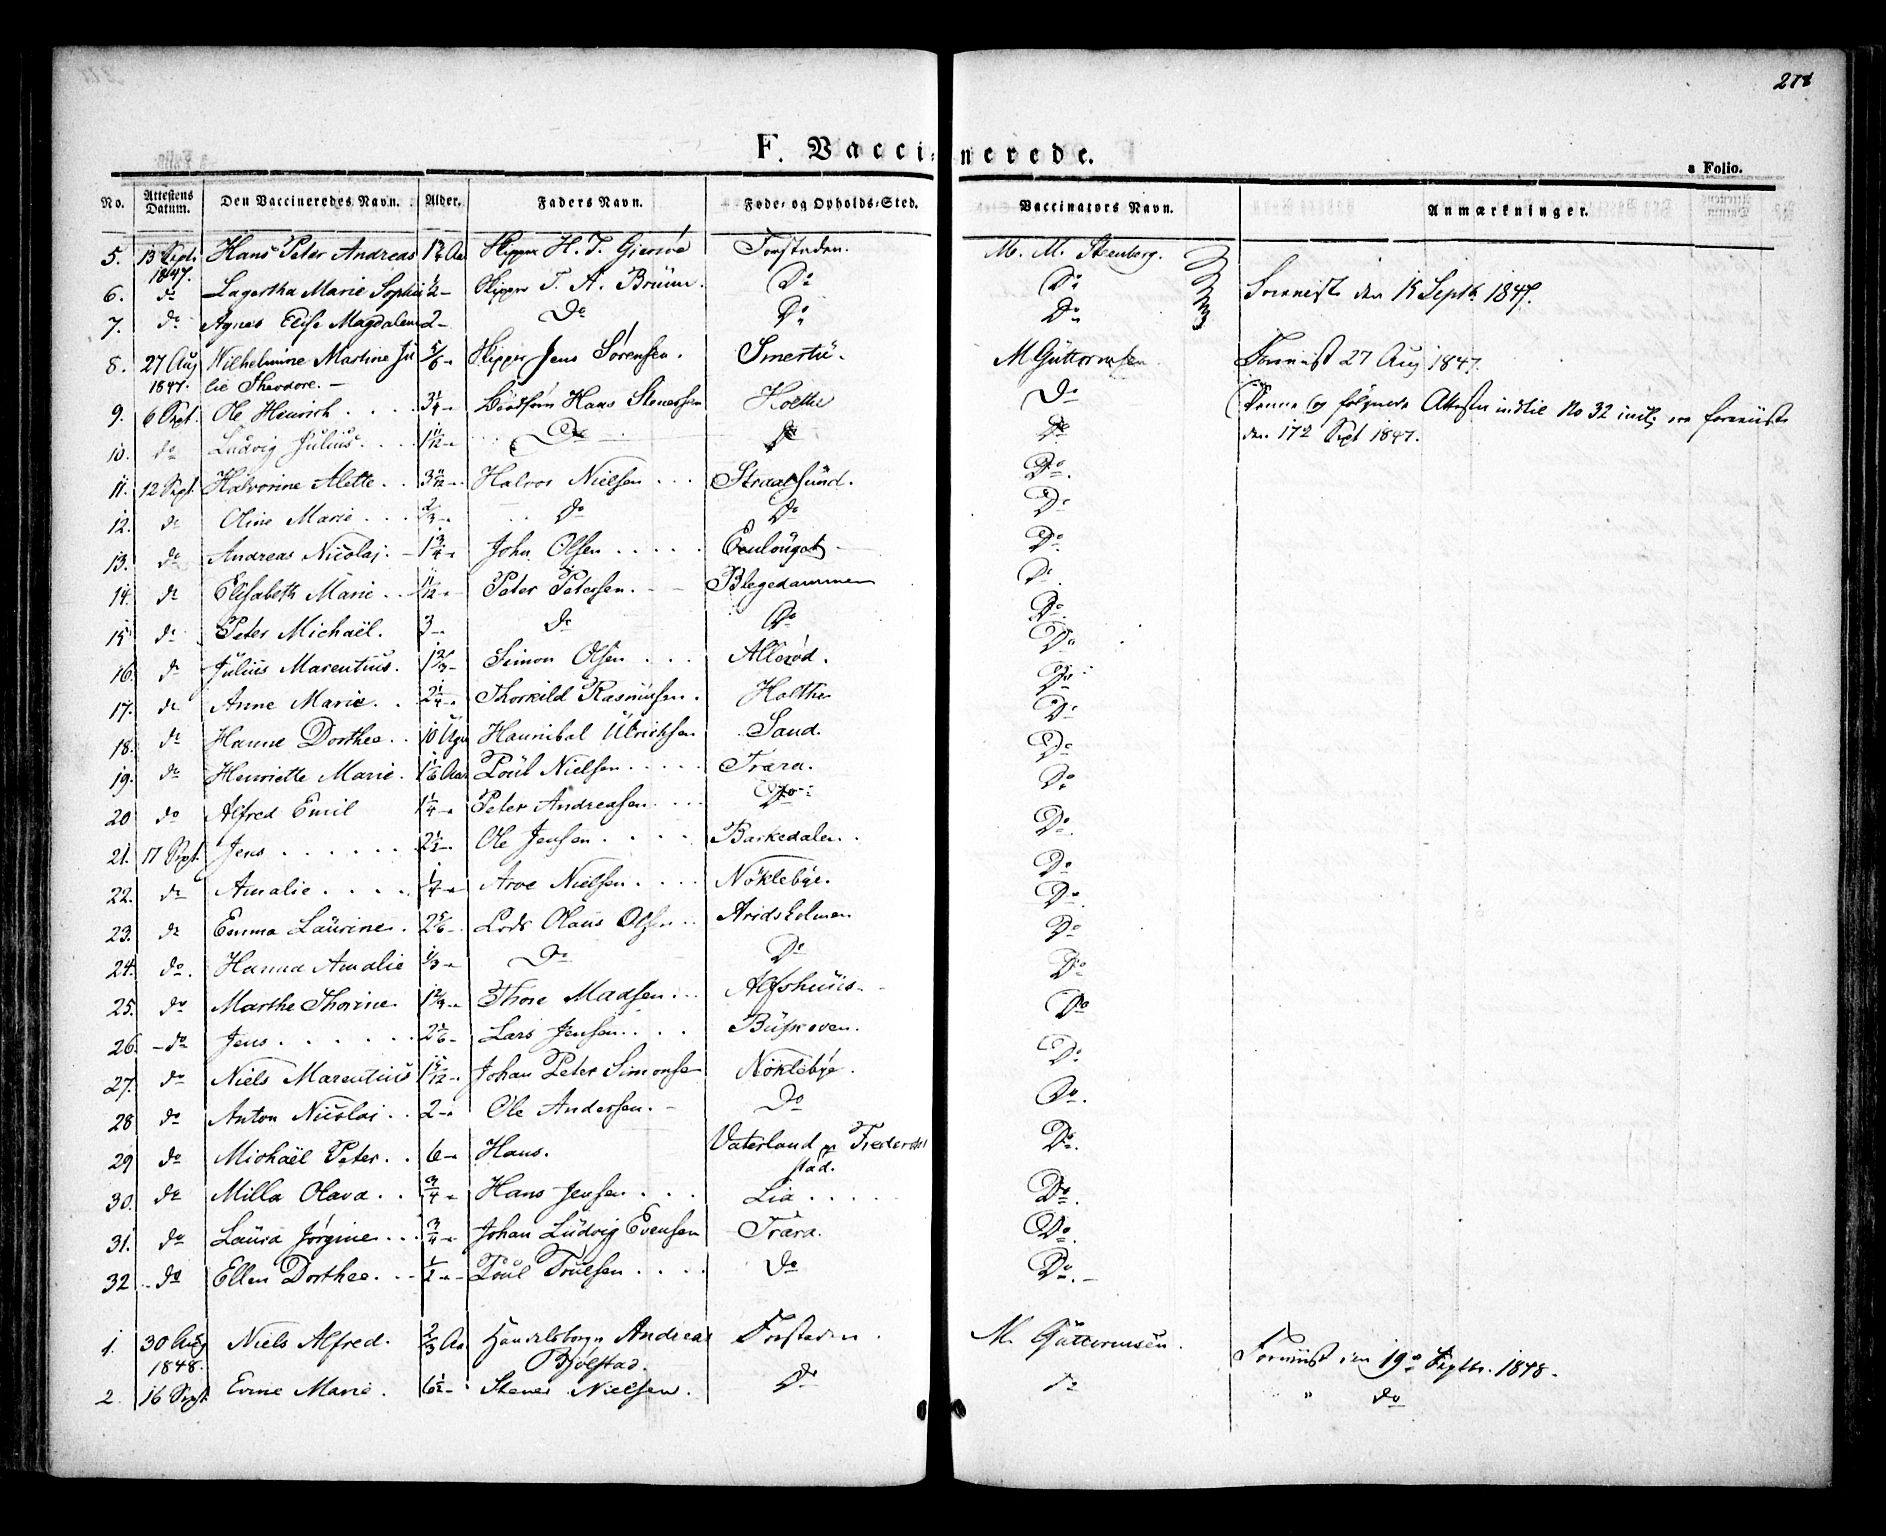 278
F. Vaccinerede.
a Folio.
No. Attestens Datum. Den Vaccineredes Navn. Alder. Faders Navn. Føde- og Opholds-Sted. Vaccinators Navn. Anmærkninger.
5. 13 Sept. 1847. Hans Peter Andreas Skipper H. T. Forstaden. M. M. Steenberg.
6. do Lagertha Marie Sophie ½ Skipper T. A. Bruun. Do Do Forniist den 15 Septb. 1847.
7. do Agnes Elise Magdalene 2 Do Do Do
8. 27 Aug Wilhelmine Martine Ju 5/6 Skipper Jens Sörensen. Smertü. M Güttormsen Forniist 27 Aug 1847.
1847. lie Theodore.
9. 6 Sept. Ole Henrich 3¼ Hans Stenersen Holthe Do Denne og følgende Attester indtil No 32 incl. ere forniiste
10. do Ludvig Julius. 1 11/12 Do Do Do den 17de Sept 1847.
11. 12 Sept. Halvorine Alette Halvor Nielsen Straalsund. Do.
12. do Oline Marie 2/3 Do Do Do
13. do Andreas Nicolaj. 1¾ John Olsen Do.
14. do Elisabeth Marie 11/12 Peter Petersen. Blegedammen Do
15 do Peter Michaël. 3 Do Do Do
16. do Julius Marentius. 1⅔ Simon Olsen Allerød. Do
17. do Anne Marie 2¼ Thorkild Rasmussen. Holthe Do
18. do Hanne Dorthea 10 Uger Hannibal Ulrichsen Sand. Do
19. do Henriette Marie. 1 1/6 Aar Poül Nielsen Trara. Do
20 do Alfred Emil 1¼ Peter Andreasen Do Do
21. 17 Sept. Jens 2½ Ole Jensen Barkedalen Do
22. do Amalie ¼ Arve Nielsen Nöklebÿe. Do
23. do Emma Laürine. 2 5/6 Lods Olaus Olsen Aridsholmen Do
24. do. Hanna Amalie ⅓ Do Do Do
25. do Marthe Thorine. 1⅔ Thore Madsen Alfshuus Do
26. do Jens 2 5/6 Lars Jensen Büskoven. Do
27. do Niels Marentius 1 5/12 Johan Peter Simonsen Nöklebÿe. Do
28 do Anton Nicolaj 2 Ole Andersen. Do Do.
29 do Michaël Peter 6 Hans. Vaterland Frederik Do.
stad.
30. do Milla Olava ¾ Hans Jensen Lia Do.
31. do Laura Jørgine ¾ Johan Lüdvig Evensen Trara. Do.
32 do Ellen Dorthea ½ Poül Troülsen Do Do.
1. 30 Aug 1848. Niels Alfred. ⅔ Aar Handelsborger Andreas Forstaden M. Güttormsen Forniist den 19de Septbr. 1848.
Bjølstad.
2. 16 Sept. Marie. 6½ Stener Nielsen. Do do " do